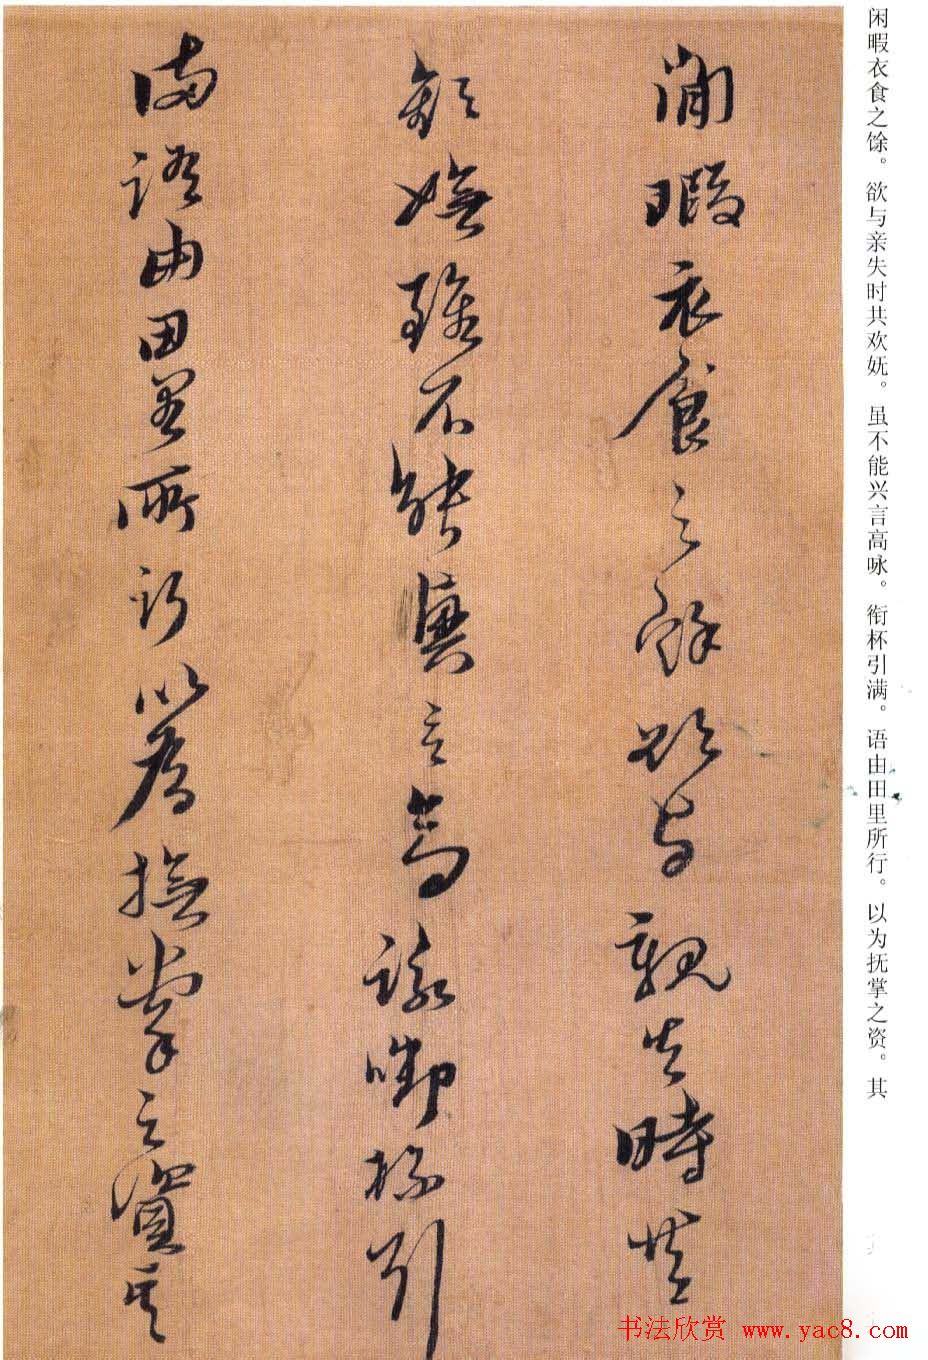 闲暇衣食之馀。欲与亲失时共欢妩。虽不能兴言高咏。衔杯引满。语由田里所行。以为抚掌之资。其
閒暇衣食之餘欲与親失時共
歡嫵雖不能興言高詠啣杯引
滿語田里所行以為撫掌之資其
书法欣赏 www.yac8.com